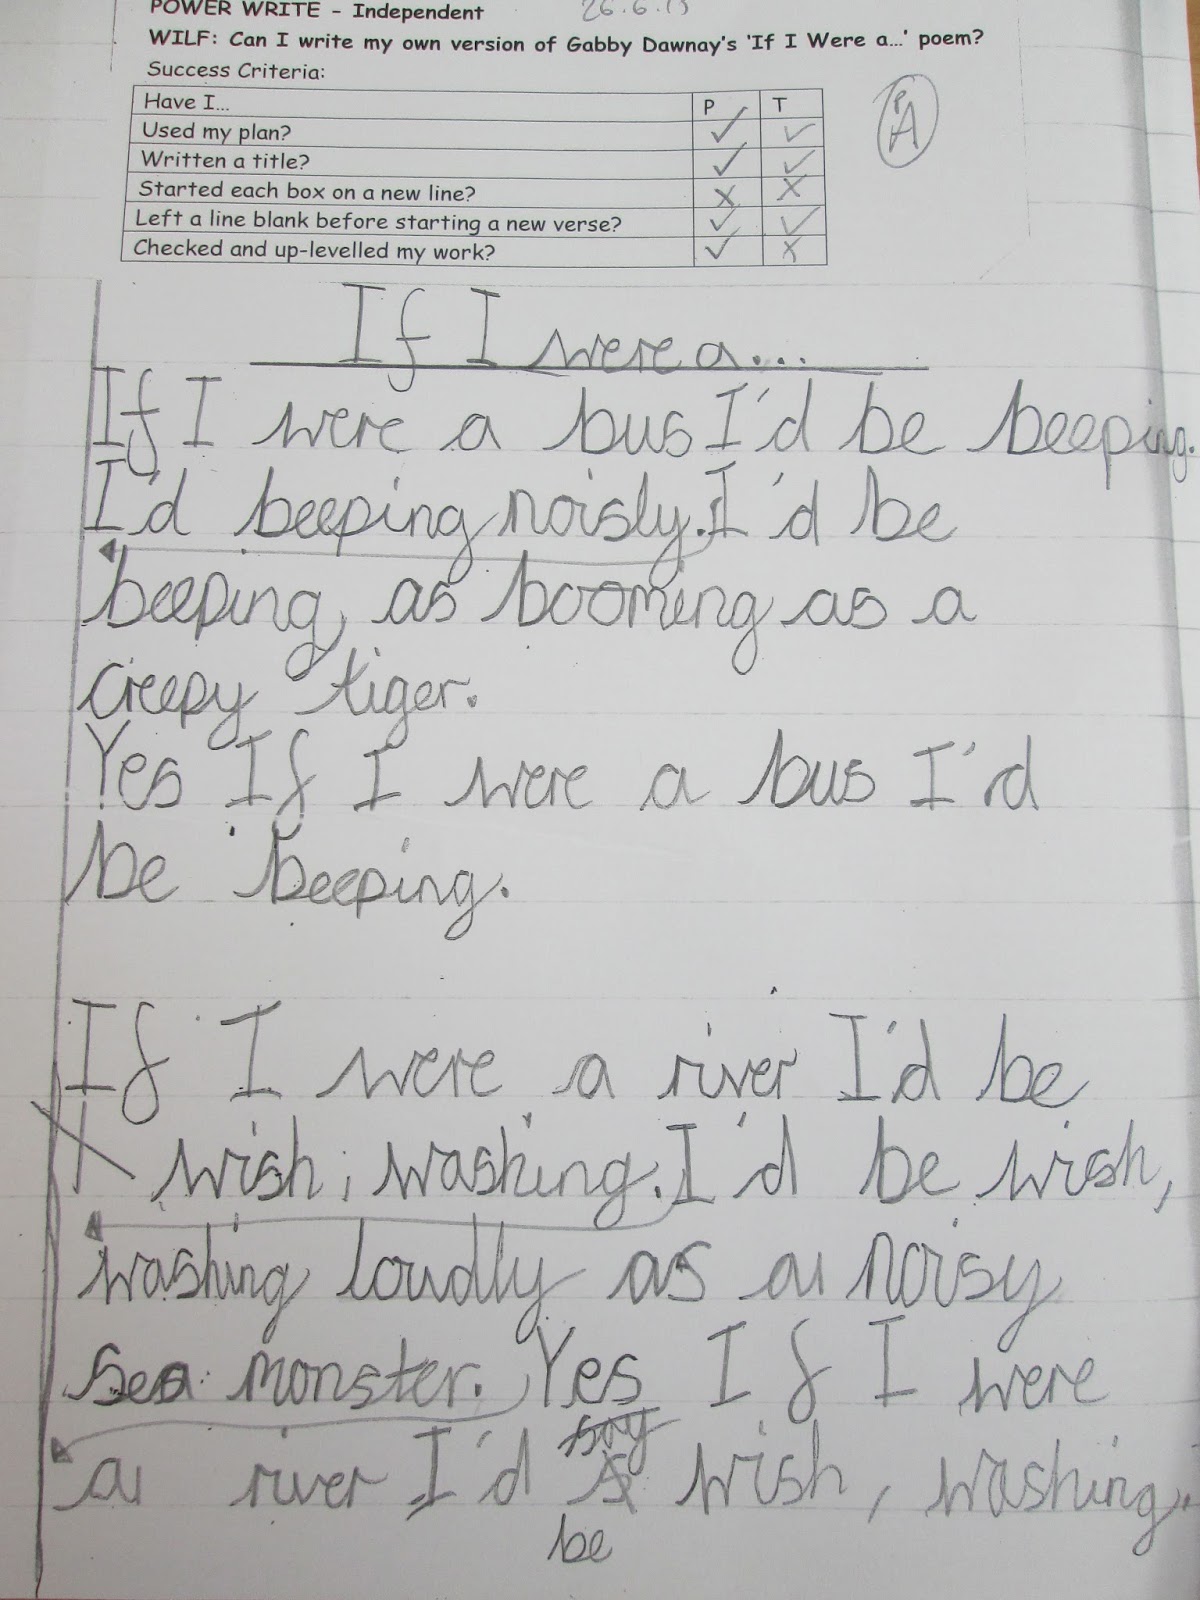 POWER WRITE - Independent 26.6.19
WILF: Can I write my own version of Gabby Dawnay's 'If I Were a...' poem?
Success Criteria:
Have I... P T
Used my plan? ✓ ✓
Written a title? ✓ ✓
Started each box on a new line? x x
Left a line blank before starting a new verse? ✓ ✓
Checked and up-levelled my work? ✓ x
A
If I were a...
If I were a bus I'd be beeping.
I'd beeping noisly. I'd be
beeping, as booming as a
creepy tiger.
Yes If I were a bus I'd
be beeping.
If I were a river I'd be
wish, washing. I'd be wish,
washing loudly as a noisy
sea monster. Yes If I were
a river I'd wish, washing.
be